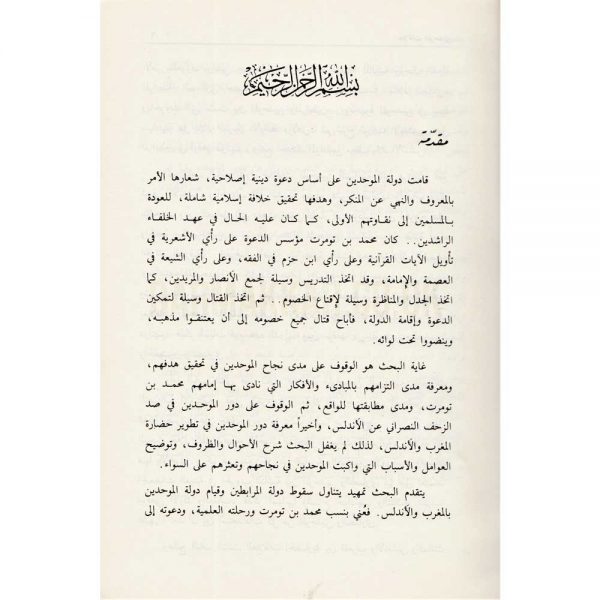 بسم الله الرحمن الرحيم
مقدّمة
قامت دولة الموحدين على أساس دعوة دينية إصلاحية، شعارها الأمر
بالمعروف والنهي عن المنكر، وهدفها تحقيق خلافة إسلامية شاملة، للعودة
بالمسلمين إلى نقاوتهم الأولى، كما كان عليه الحال في عهد الخلفاء
الراشدين.. كان محمد بن تومرت مؤسس الدعوة على رأي الأشعرية في
تأويل الآيات القرآنية وعلى رأي ابن حزم في الفقه، وعلى رأي الشيعة في
العصمة والإمامة، وقد اتخذ التدريس وسيلة لجمع الأنصار والمريدين، كما
اتخذ الجدل والمناظرة وسيلة لإقناع الخصوم.. ثم اتخذ القتال وسيلة لتمكين
الدعوة وإقامة الدولة، فأباح قتال جميع خصومه إلى أن يعتنقوا مذهبه،
وينضووا تحت لوائه.
غاية البحث هو الوقوف على مدى نجاح الموحدين في تحقيق هدفهم،
ومعرفة مدى التزامهم بالمبادىء والأفكار التي نادى بها إمامهم محمد بن
تومرت، ومدى مطابقتها للواقع، ثم الوقوف على دور الموحدين في صد
الزحف النصراني عن الأندلس، وأخيراً معرفة دور الموحدين في تطوير حضارة
المغرب والأندلس، لذلك لم يغفل البحث شرح الأحوال والظروف، وتوضيح
العوامل والأسباب التي واكبت الموحدين في نجاحهم وتعثرهم على السواء.
يتقدم البحث تمهيد يتناول سقوط دولة المرابطين وقيام دولة الموحدين
بالمغرب والأندلس. فعُني بنسب محمد بن تومرت ورحلته العلمية، ودعوته إلى